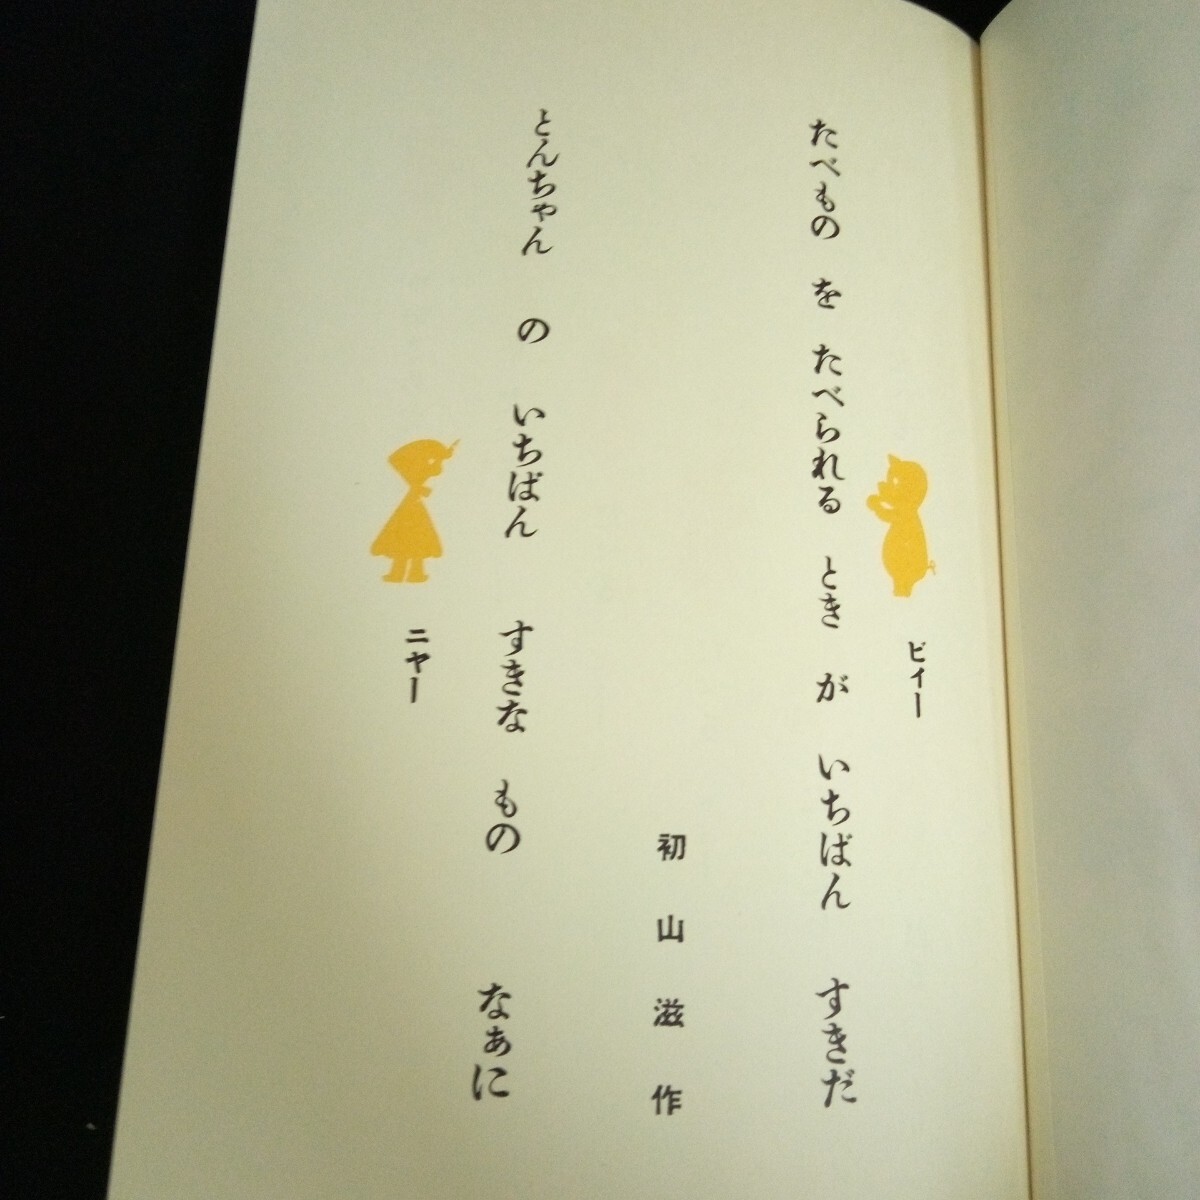 ビィー
たべもの を たべられる とき が いちばん すきだ
初山滋作
とんちゃん の いちばん すきな もの なぁに
ニヤー